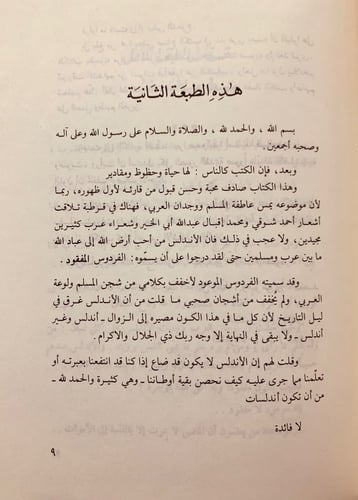 هٰذِهِ الطبعَة الثانيَة
بسم الله ، والحمد لله ، والصلاة والسلام على رسول الله وعلى آله
وصحبه أجمعين.
وبعد، فإن الكتب كالناس : لها حياة وحظوظ ومقادير
وهذا الكتاب صادف محبة وحسن قبول من قارئه لأول ظهوره، ربما
لأن موضوعه يمس عاطفة المسلم ووجدان العربي، فهناك في قرطبة تلاقت
أشعار أحمد شوقي ومحمد إقبال عبدالله أبي الخير وشعراء عرب كثيرين
مجيدين، ولا عجب في ذلك فان الأندلس من أحب أرض الله إلى عباد الله
ما بين عرب ومسلمين حتى لقد درجوا على أن يسمّوه: الفردوس المفقود .
وقد سميته الفردوس الموعود لأخفف بكلامي من شجن المسلم ولوعة
العربي، ولم يُخفف من أشجان صحبي ما قلت من أن الأندلس غرق في
ليل التاريخ لأن كل ما في هذا الكون مصيره إلى الزوال ـ أندلس وغير
أندلس ـ ولا يبقى في النهاية إلا وجه ربك ذي الجلال والاكرام .
وقلت لهم إن الأندلس لا يكون قد ضاع إذا كنا قد انتفعنا بعبرته أو
تعلّمنا مما جرى عليه كيف نحصن بقية أوطاننا ـ وهي كثيرة والحمد لله ـ
من أن تكون أندلسات
لا فائدة
٩